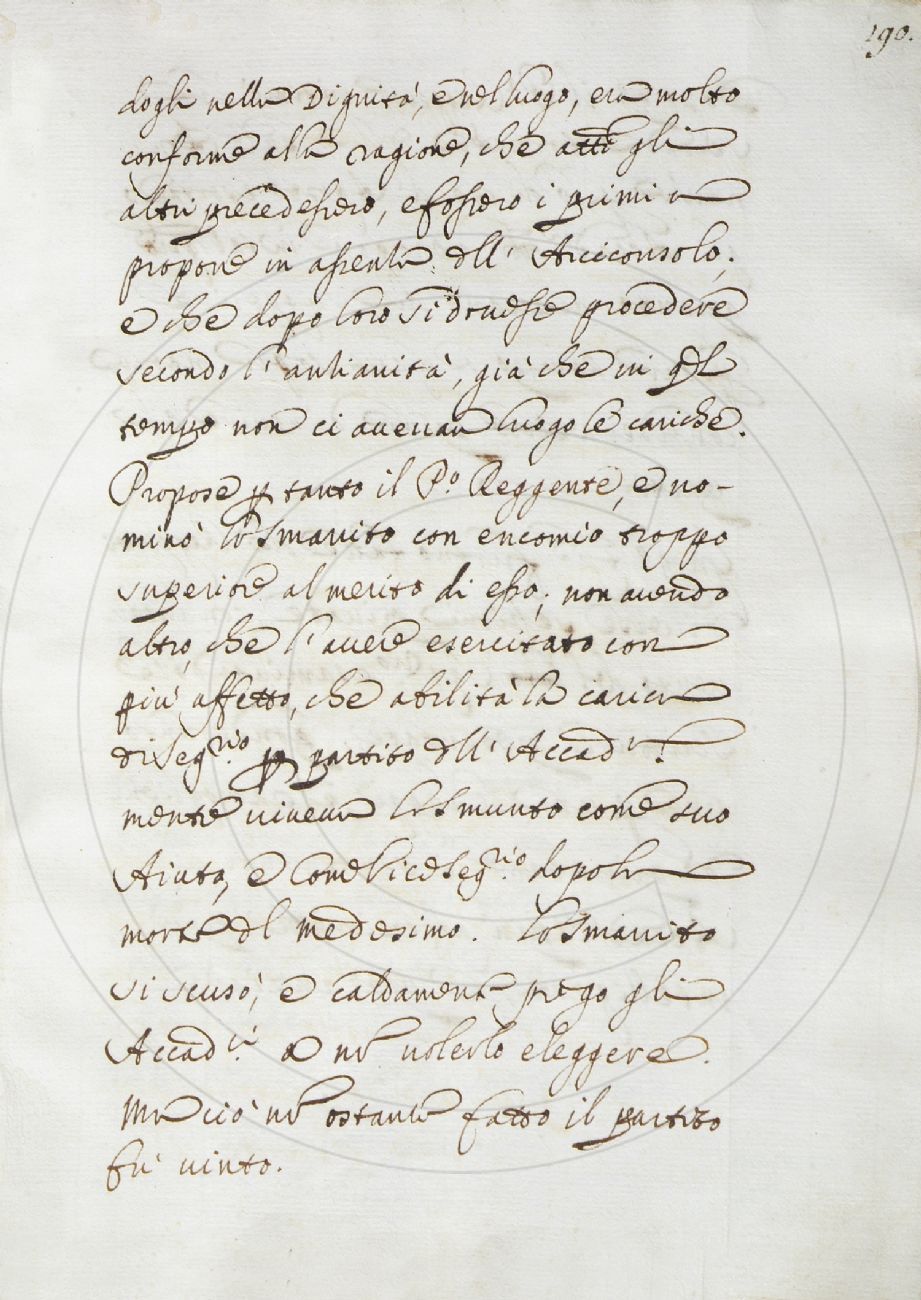 190.
dogli nella Dignità, e nel luogo, era molto
conforme alla ragione, che atti gli
altri precedessero, e fossero i primi a
propore in assenza dell' Arciconsolo,
e che dopo loro si dovesse procedere
secondo l'anzianità, già che in ql
tempo non ci avevan luogo le cariche.
Propose p tanto il P.o Reggente, e no-
minò lo Smarrito con encomio troppo
superiore al merito di esso; non avendo
altro, che l'avere esercitato con
più affetto, che abilità la carica
di Seg.rio p partito dell' Accad.a
mentre viveva lo Smunto come suo
Aiuto, e Come Vice Seg.rio dopo la
morte del medesimo. Lo Smarrito
si scusò; e caldamente prego gli
Accad.ci a no volerlo eleggere.
Ma ciò no ostante fatto il partito
fu vinto.